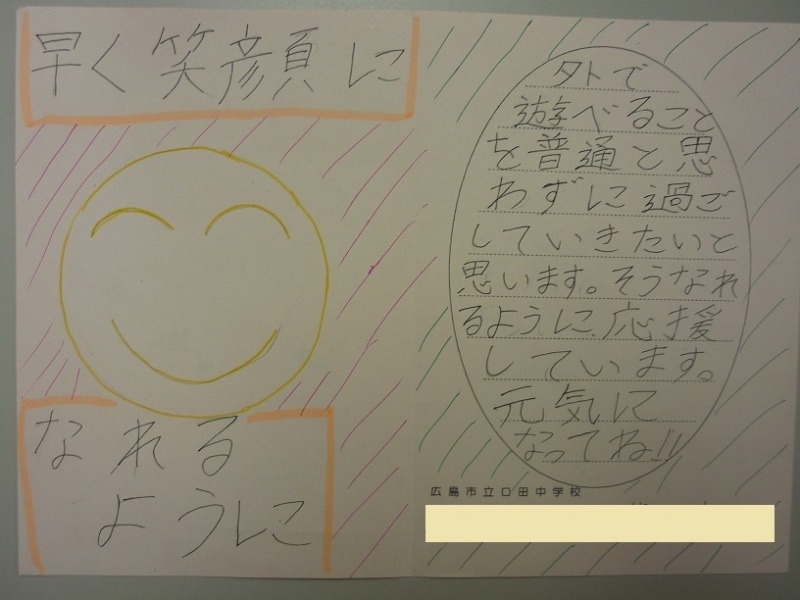 早く笑顔に
なれる
ように
外で
遊べること
を普通と思
わずに過ご
していきたいと
思います。そうなれ
るように応援
しています。
元気に
なってね!!
広島市立口田中学校